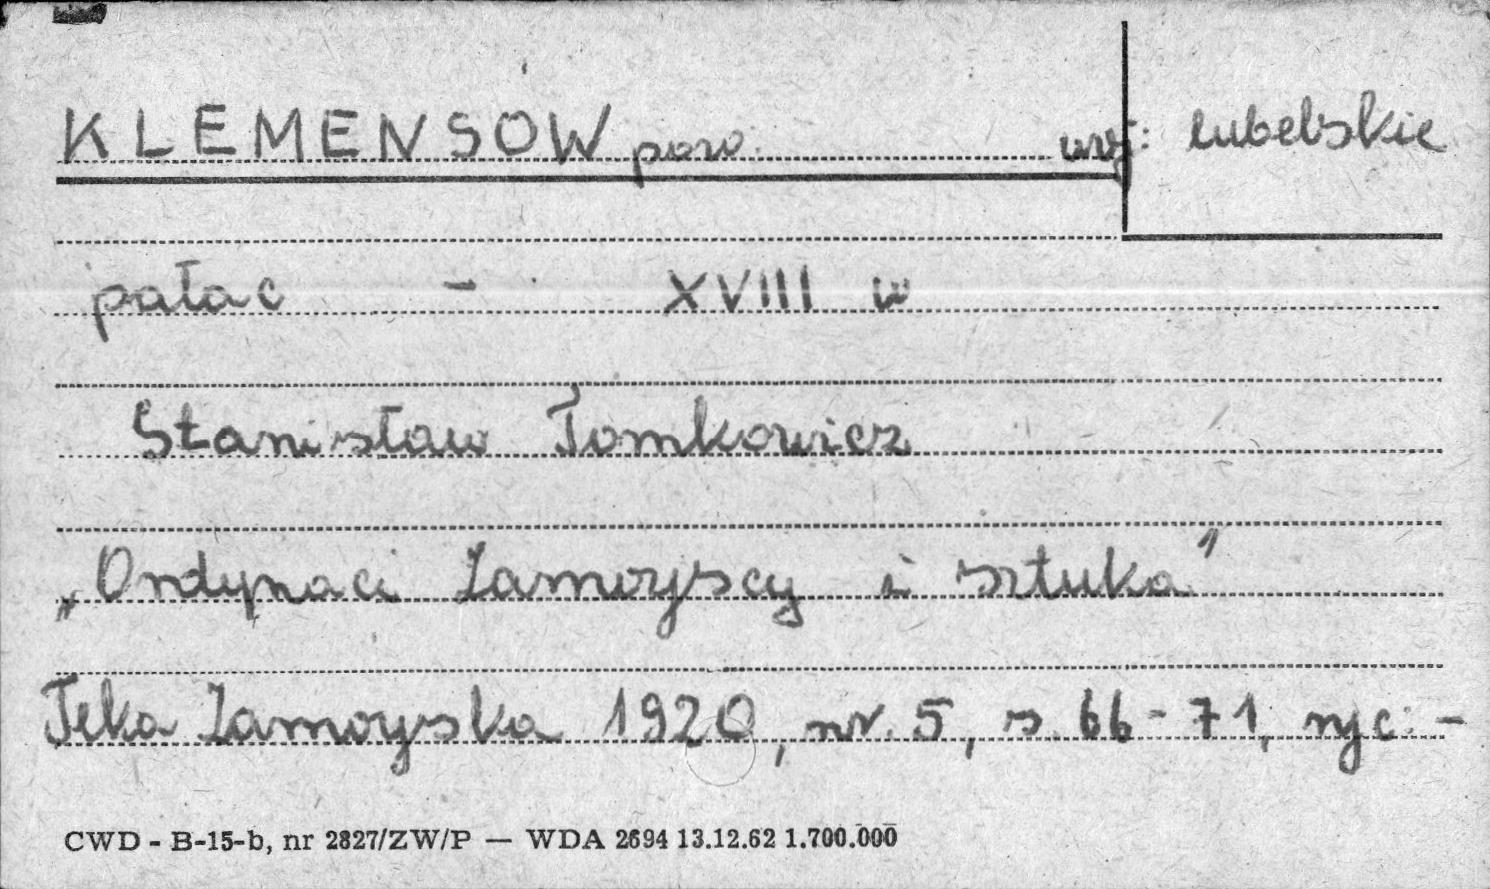 KLEMENSÓW pow. woj: lubelskie
pałac - XVIII w
Stanisław Tomkowicz
„Ordynaci Zamoyscy i sztuka"
Teka Zamoyska 1920, nr. 5, s. 66-71, ryc. -
CWD - B-15-b, nr 2827/ZW/P — WDA 2694 13.12.62 1.700.000